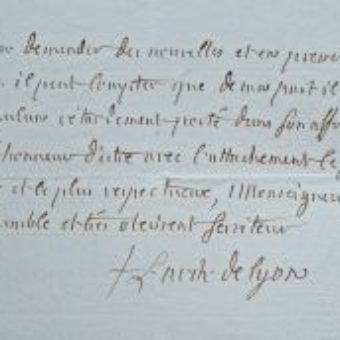 demander des nouvelles et en
il peut compter que de ma part il
retardement porté dans son aff
honneur d'etre avec l'attachement le
et le plus respectueux, Monseigneur
umble et très obeissant serviteur
de Lyon